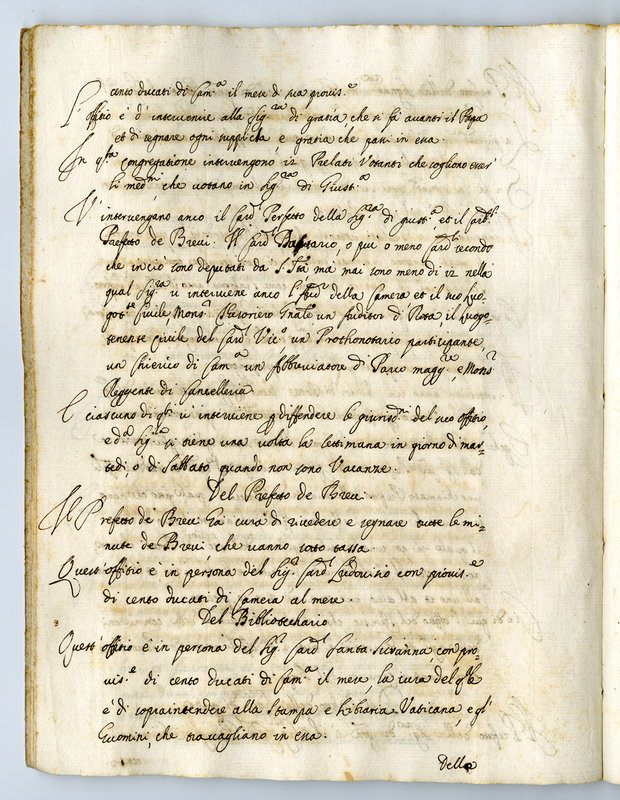 cento ducati di Cam.ª il mese di sua provis.e
L'offitio è d'intervenire alla Sig.ra di gratia, che si fà avanti il Papa
et di segnare ogni supplica, e gratia che passi in essa.
In q.sta congregatione intervengono 12 Prelati Votanti che sogliono esser'
li med.mi, che votano in Sig.ra di Giust.ª
V'intervengano anco il Card.l Perfetto della Sig.ra di giust.ª et il Card.l
Prefetto de Brevi. Il Card.l Datario, o più o meno Card.li secondo
che in ciò sono deputati da S. S.tà mà mai sono meno di 12 nella
qual Sig.ra v'interviene anco l'Aud.r della Camera et il suo Luo-
got.te Civile, Mons.r Thesoriero Gnale un Auditor di Rota, il Luogo-
tenente civile del Card.l Vic.o un Prothonotario participante,
un Chierico di Cam.ª un Abbreviatore di Parco magg.re, e Mons.r
Reggente di Cancelleria
E ciascuno di q.li vi interviene p diffendere le giurisd.ni del suo offitio,
e d.ª Sig.ra si tiene una volta la settimana in giorno di mar-
tedi, o di Sabbato quando non sono Vacanze.
Del Prefetto de Brevi.
Il Prefetto de Brevi hà cura di rivedere e segnare tutte le mi-
nute de Brevi che vanno sotto tassa.
Quest'offitio è in persona del Sig.r Card.l Ludovisio con provis.e
di cento ducati di Camera al mese.
Del Bibliothechario
Quest'offitio è in persona del Sig.r Card.l Santa Susanna, con pro-
vis.e di cento ducati di Cam.ª il mese, la cura del q.le
è di sopraintendere alla Stampa e Libraria Vaticana, e gl'
huomini, che travagliano in essa.
Della